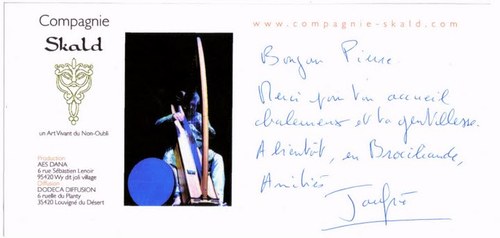 Compagnie
Skald
un Art Vivant du Non-Oubli
Production
AES DANA
6 rue Sébastien Lenoir
95420 Wy dit joli village
Diffusion
DODECA DIFFUSION
6 ruelle du Planty
35420 Louvigné du Désert
www.compagnie-skald.com
Bonjour Pierre
Merci pour ton accueil
chaleureux et ta gentillesse.
A bientôt, en Brocéliande,
Amitiés